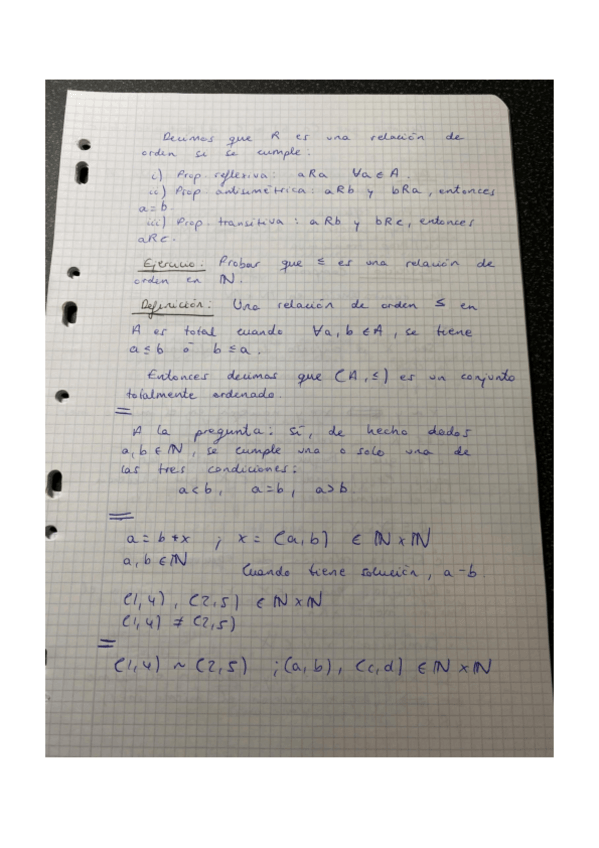 Decimos que R es una relación de
orden si se cumple:
i) Prop. reflexiva: aRa ∀a∈A.
ii) Prop antisimétrica: aRb y bRa, entonces
a=b.
iii) Prop. transitiva: aRb y bRc, entonces
aRc.
Ejercicio: Probar que ≤ es una relación de
orden en ℕ.
Definición: Una relación de orden ≤ en
A es total cuando ∀a,b∈A, se tiene
a≤b ó b≤a.
Entonces decimos que (A,≤) es un conjunto
totalmente ordenado.
=
A la pregunta: sí, de hecho dados
a,b∈ℕ, se cumple una o solo una de
las tres condiciones:
a<b, a=b, a>b
=
a=b+x ; x=(a,b) ∈ ℕ×ℕ
a,b∈ℕ Cuando tiene solución, a-b.
(1,4), (2,5) ∈ ℕ×ℕ
(1,4) ≠ (2,5)
=
(1,4) ~ (2,5) ; (a,b), (c,d) ∈ ℕ×ℕ